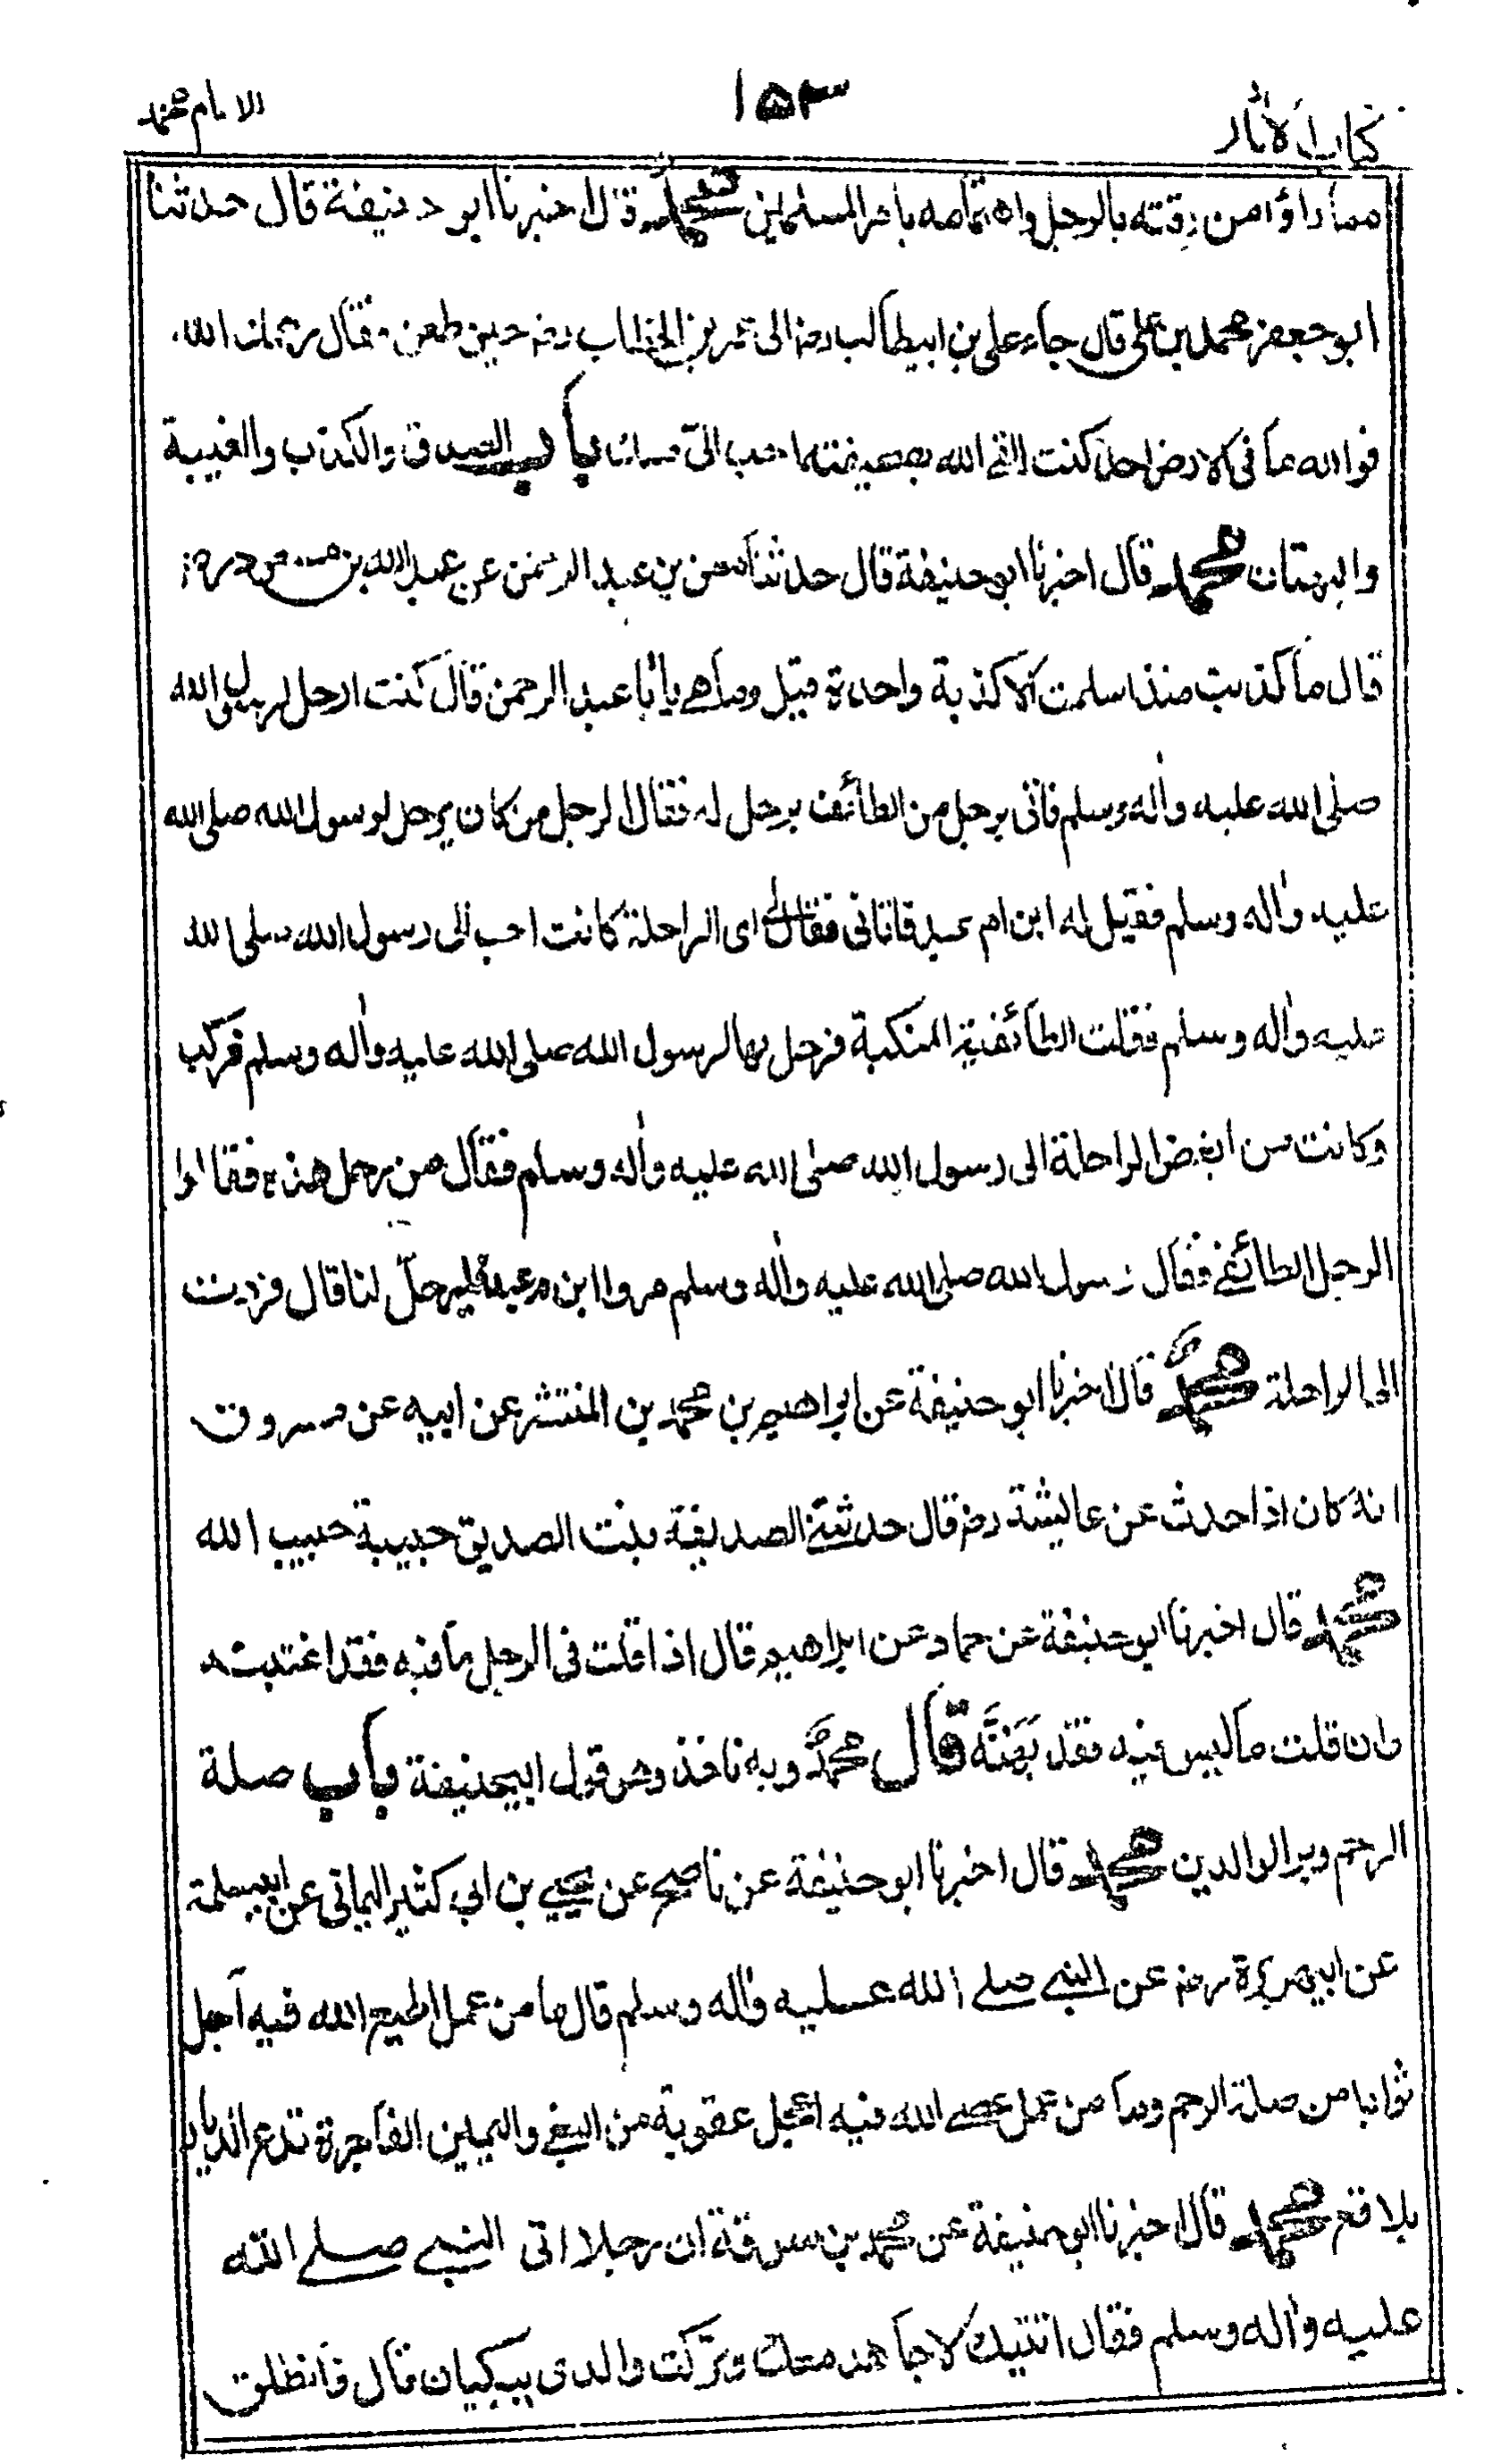 كتاب الاثار ١٥٣ للامام محمد
مما راؤا من رقته بالرجل واهتمامه بامر المسلمين محمد قال اخبرنا ابو حنيفة قال حدثنا
ابو جعفر محمد بن علي قال جاء علي بن ابيطالب رضـ الى عمر بن الخطاب رضـ حين طعن فقال رحمك الله
فوالله ما فى الارض احد كنت القى الله بصحيفته احب الىّ منك باب الصدق والكذب والغيبة
والبهتان محمد قال اخبرنا ابو حنيفة قال حدثنا معن بن عبد الرحمن عن عبد الله بن مسعود رضـ
قال ما كذبت منذ اسلمت الا كذبة واحدة قيل وما هى يا ابا عبد الرحمن قال كنت ارحل لرسول الله
صلى الله عليه واٰله وسلم فاتى برجل من الطائف يرحل له فقال الرجل من كان يرحل لرسول الله صلى الله
عليه واٰله وسلم فقيل له ابن ام عبد فاتانى فقال لى اى الراحلة كانت احب الى رسول الله صلى الله
عليه واٰله وسلم فقلت الطائفية المنكبة فرحل بها لرسول الله صلى الله عليه واٰله وسلم فركب
وكانت من ابغض الراحلة الى رسول الله صلى الله عليه واٰله وسلم فقال من رحل هذه فقالوا
الرجل الطائفى فقال رسول الله صلى الله عليه واٰله وسلم مروا ابن ام عبد فليرحل لنا قال فردت
الى الراحلة محمد قال اخبرنا ابو حنيفة عن ابراهيم بن محمد بن المنتشر عن ابيه عن مسروق
انه كان اذا حدث عن عايشة رضـ قال حدثتنى الصديقة بنت الصديق حبيبة حبيب الله
محمد قال اخبرنا ابو حنيفة عن حماد عن ابراهيم قال اذا قلت فى الرجل ما فيه فقد اغتبته
وان قلت ما ليس فيه فقد بَهَتَّه قال محمدؒ وبه ناخذ وهو قول ابيحنيفة باب صلة
الرحم وبر الوالدين محمد قال اخبرنا ابو حنيفة عن ناصح عن يحيى بن ابى كثير اليمانى عن ابيسلمة
عن ابيهريرة رضـ عن النبى صلے الله عليه واٰله وسلم قال ما من عمل اطيع الله فيه اجل
ثوابا من صلة الرحم وما من عمل عصى الله فيه اعجل عقوبة من البغى واليمين الفاجرة تدع الديار
بلاقع محمد قال اخبرنا ابو حنيفة عن محمد بن سوقة ان رجلا اتى النبى صلے الله
عليه واٰله وسلم فقال اتيتك لاجاهد معك وتركت والدى يبكيان قال فانطلق